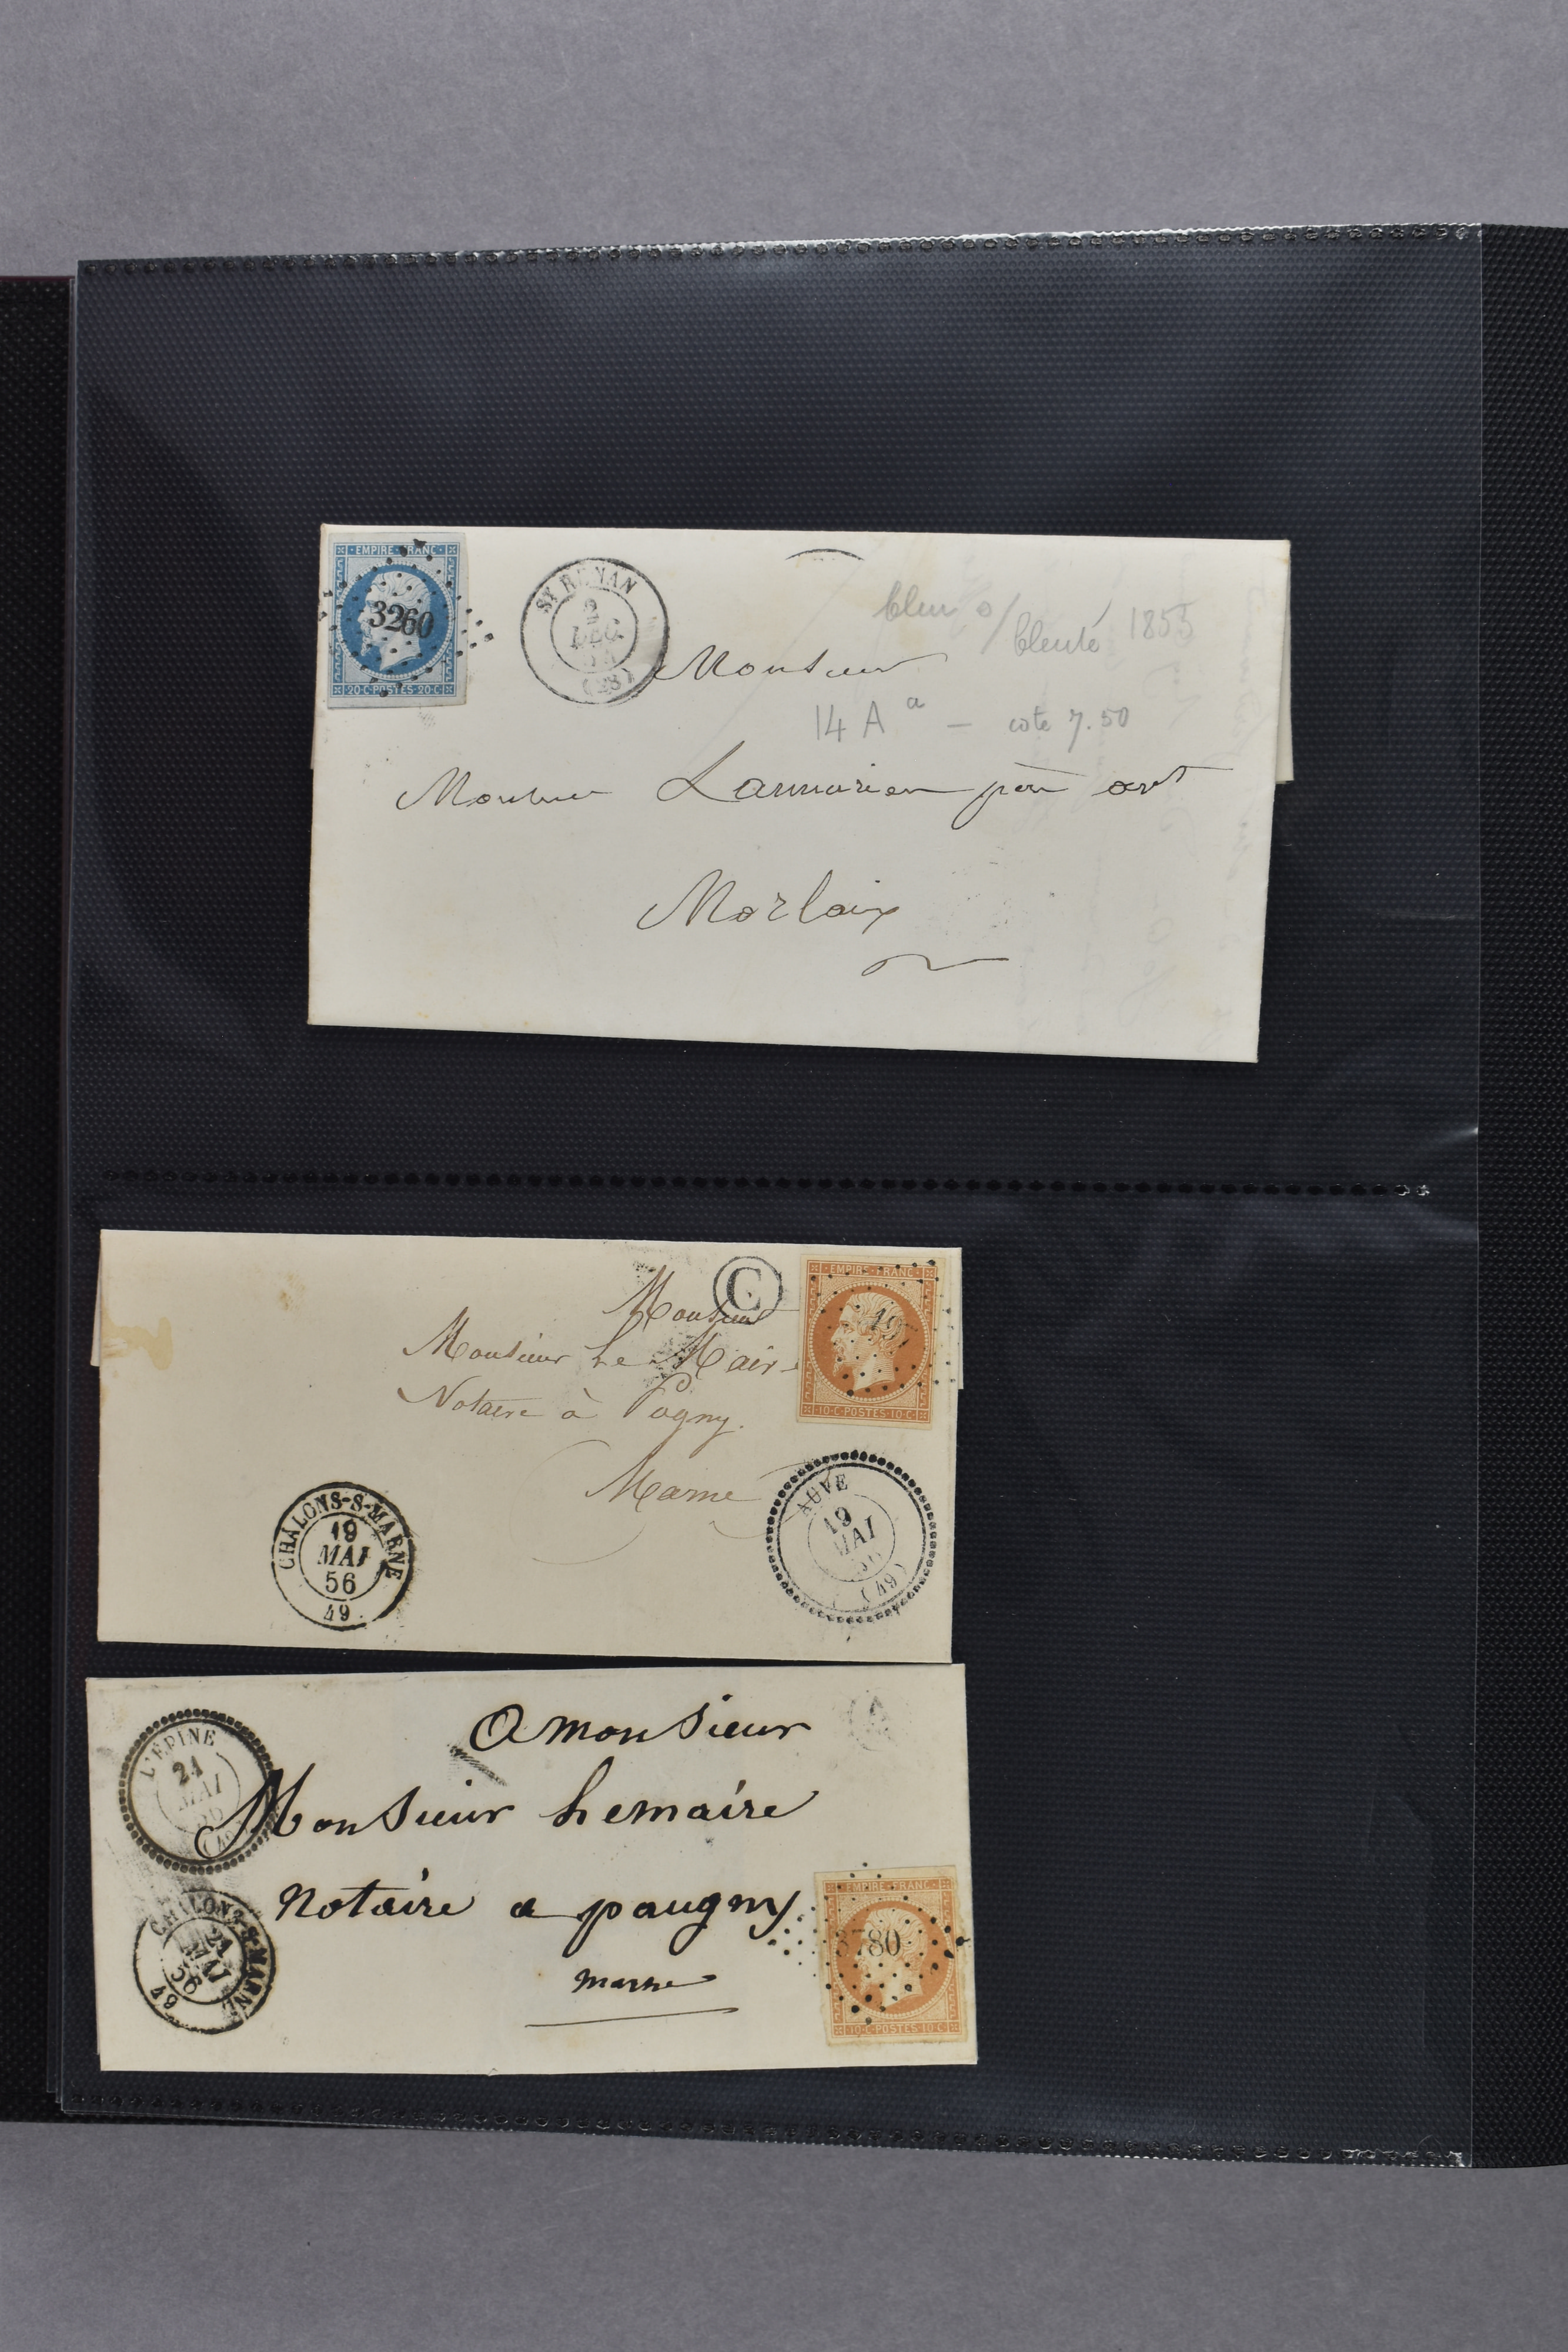 EMPIRE FRANC
3260
20 C POSTES 20 C
ST RENAN
2
DEC
(28)
bleu s/ bleuté 1855
Monsieur
14 A a - cote 7.50
Monsieur
Morlaix
C
EMPIRE FRANC
10 C POSTES 10 C
Monsieur
Monsieur Le Maire
Notaire à Pogny.
Marne
CHALONS-S-MARNE
19
MAI
56
49
AUVE
19
MAI
56
(49)
A
L'EPINE
21
MAI
56
A monsieur
Monsieur Lemaire
Notaire a paugny
marne
CHALONS-S-MARNE
21
MAI
56
49
EMPIRE FRANC
3780
10 C POSTES 10 C